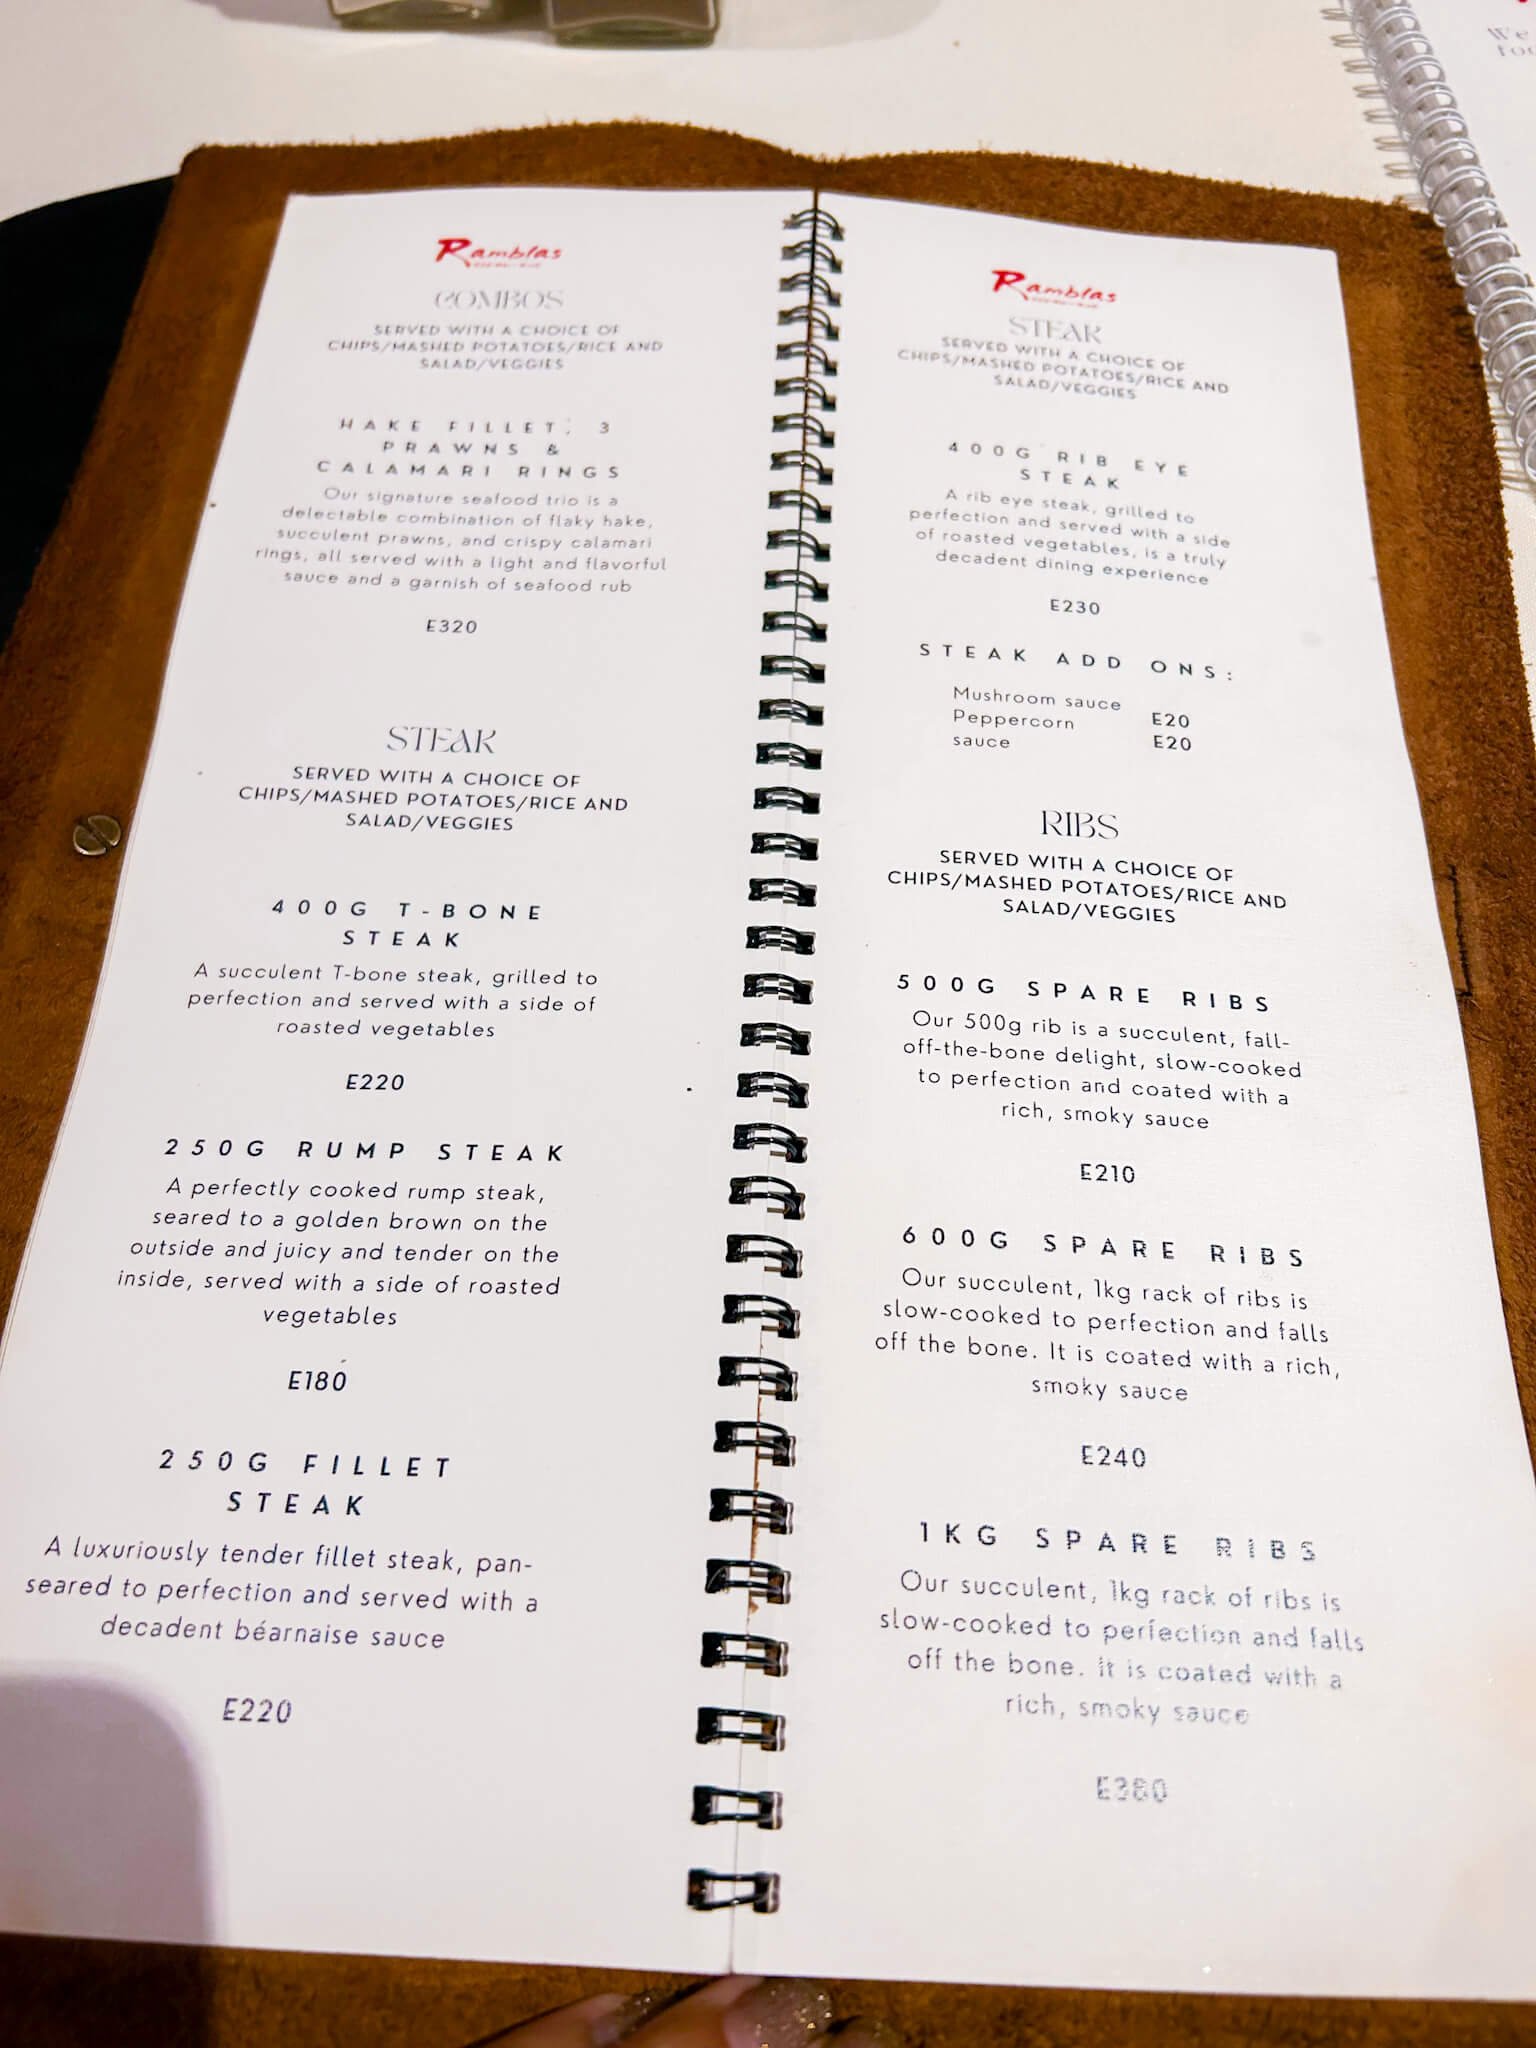 Ramblas
COMBOS
SERVED WITH A CHOICE OF
CHIPS/MASHED POTATOES/RICE AND
SALAD/VEGGIES
HAKE FILLET, 3
PRAWNS &
CALAMARI RINGS
Our signature seafood trio is a
delectable combination of flaky hake,
succulent prawns, and crispy calamari
rings, all served with a light and flavorful
sauce and a garnish of seafood rub
E320
STEAK
SERVED WITH A CHOICE OF
CHIPS/MASHED POTATOES/RICE AND
SALAD/VEGGIES
400G T-BONE
STEAK
A succulent T-bone steak, grilled to
perfection and served with a side of
roasted vegetables
E220
250G RUMP STEAK
A perfectly cooked rump steak,
seared to a golden brown on the
outside and juicy and tender on the
inside, served with a side of roasted
vegetables
E180
250G FILLET
STEAK
A luxuriously tender fillet steak, pan-
seared to perfection and served with a
decadent béarnaise sauce
E220
Ramblas
STEAK
SERVED WITH A CHOICE OF
CHIPS/MASHED POTATOES/RICE AND
SALAD/VEGGIES
400G RIB EYE
STEAK
A rib eye steak, grilled to
perfection and served with a side
of roasted vegetables, is a truly
decadent dining experience
E230
STEAK ADD ONS:
Mushroom sauce E20
Peppercorn
sauce E20
RIBS
SERVED WITH A CHOICE OF
CHIPS/MASHED POTATOES/RICE AND
SALAD/VEGGIES
500G SPARE RIBS
Our 500g rib is a succulent, fall-
off-the-bone delight, slow-cooked
to perfection and coated with a
rich, smoky sauce
E210
600G SPARE RIBS
Our succulent, 1kg rack of ribs is
slow-cooked to perfection and falls
off the bone. It is coated with a rich,
smoky sauce
E240
1KG SPARE RIBS
Our succulent, 1kg rack of ribs is
slow-cooked to perfection and falls
off the bone. It is coated with a
rich, smoky sauce
We